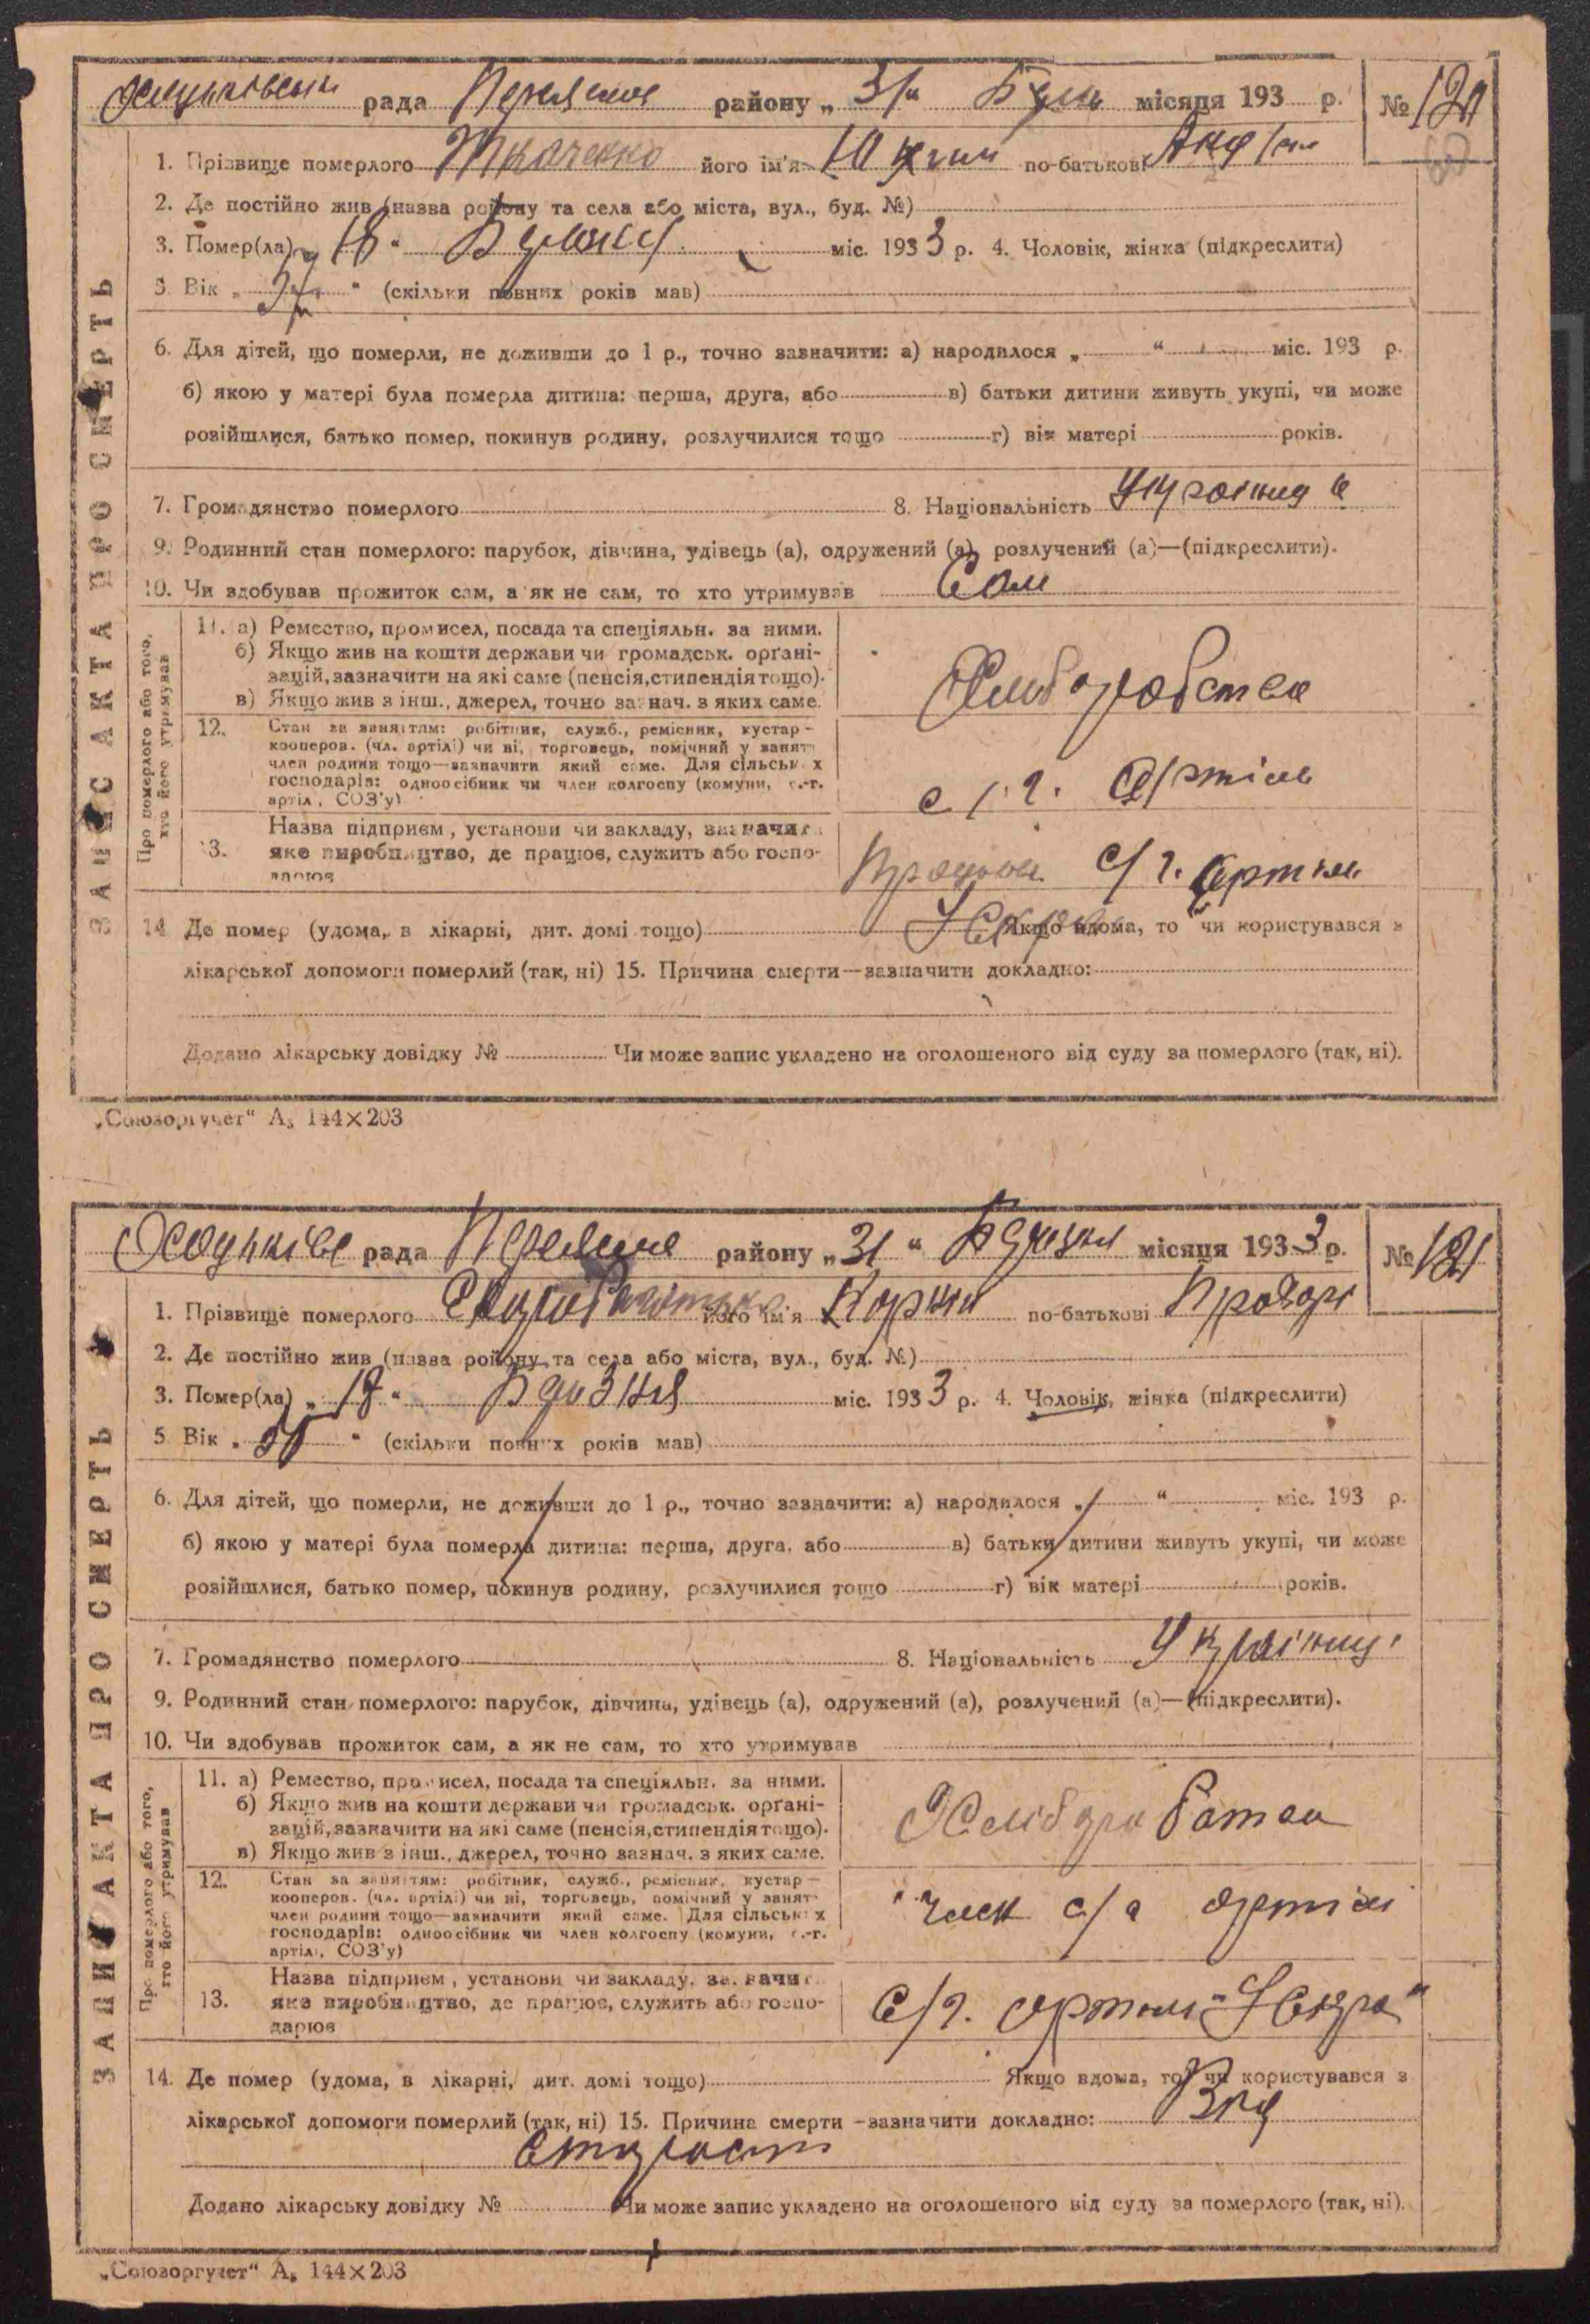 рада району „ 31 “ місяця 193 р. № 120
ЗАПИС АКТА ПРО СМЕРТЬ
1. Прізвище померлого Ткаченко його ім'я по-батькові
2. Де постійно жив (назва району та села або міста, вул., буд. №)
3. Помер(ла) „ 18 “ міс. 1933 р. 4. Чоловік, жінка (підкреслити)
5. Вік „ “ (скільки повних років мав)
6. Для дітей, що померли, не доживши до 1 р., точно зазначити: а) народилося „ “ міс. 193 р.
б) якою у матері була померла дитина: перша, друга, або в) батьки дитини живуть укупі, чи може
розійшлися, батько помер, покинув родину, розлучилися тощо г) вік матері років.
7. Громадянство померлого 8. Національність
9. Родинний стан померлого: парубок, дівчина, удівець (а), одружений (а), розлучений (а)—(підкреслити).
10. Чи здобував прожиток сам, а як не сам, то хто утримував Сам
Про померлого або того, хто його утримував
11. а) Ремество, промисел, посада та спеціяльн. за ними.
б) Якщо жив на кошти держави чи громадськ. орґані-
зацій, зазначити на які саме (пенсія, стипендія тощо).
в) Якщо жив з інш., джерел, точно зазнач. з яких саме.
12. Стан за заняттям: робітник, служб., ремісник, кустар-
кооперов. (чл. артілі) чи ні, торговець, помічний у занят.
член родини тощо—зазначити який саме. Для сільських
господарів: одноосібник чи член колгоспу (комуни, с.-г.
артіл., СОЗ'у)
с/г. Артіль
Назва підприєм., установи чи закладу, зазначит.
13. яке виробництво, де працює, служить або госпо-
дарює
с/г. артіль
14. Де помер (удома, в лікарні, дит. домі тощо) Якщо вдома, то чи користувався з
лікарської допомоги померлий (так, ні) 15. Причина смерти—зазначити докладно:
Додано лікарську довідку № Чи може запис укладено на оголошеного від суду за померлого (так, ні).
„Союзоргучет“ А₅ 144×203
рада району „ 31 “ місяця 1933 р. № 121
ЗАПИС АКТА ПРО СМЕРТЬ
1. Прізвище померлого його ім'я Корній по-батькові
2. Де постійно жив (назва району та села або міста, вул., буд. №)
3. Помер(ла) „ “ міс. 1933 р. 4. Чоловік, жінка (підкреслити)
5. Вік „ “ (скільки повних років мав)
6. Для дітей, що померли, не доживши до 1 р., точно зазначити: а) народилося „ “ міс. 193 р.
б) якою у матері була померла дитина: перша, друга, або в) батьки дитини живуть укупі, чи може
розійшлися, батько помер, покинув родину, розлучилися тощо г) вік матері років.
7. Громадянство померлого 8. Національність
9. Родинний стан померлого: парубок, дівчина, удівець (а), одружений (а), розлучений (а)—(підкреслити).
10. Чи здобував прожиток сам, а як не сам, то хто утримував
Про померлого або того, хто його утримував
11. а) Ремество, промисел, посада та спеціяльн. за ними.
б) Якщо жив на кошти держави чи громадськ. орґані-
зацій, зазначити на які саме (пенсія, стипендія тощо).
в) Якщо жив з інш., джерел, точно зазнач. з яких саме.
12. Стан за заняттям: робітник, служб., ремісник, кустар—
кооперов. (чл. артілі) чи ні, торговець, помічний у занят.
член родини тощо—зазначити який саме. Для сільських
господарів: одноосібник чи член колгоспу (комуни, с.-г.
артіл., СОЗ'у)
член артілі
Назва підприєм., установи чи закладу, зазначит.
13. яке виробництво, де працює, служить або госпо-
дарює
с/г. артіль „Іскра“
14. Де помер (удома, в лікарні, дит. домі тощо) Якщо вдома, то чи користувався з
лікарської допомоги померлий (так, ні) 15. Причина смерти—зазначити докладно: Від
старості
Додано лікарську довідку № Чи може запис укладено на оголошеного від суду за померлого (так, ні).
„Союзоргучет“ А₅ 144×203